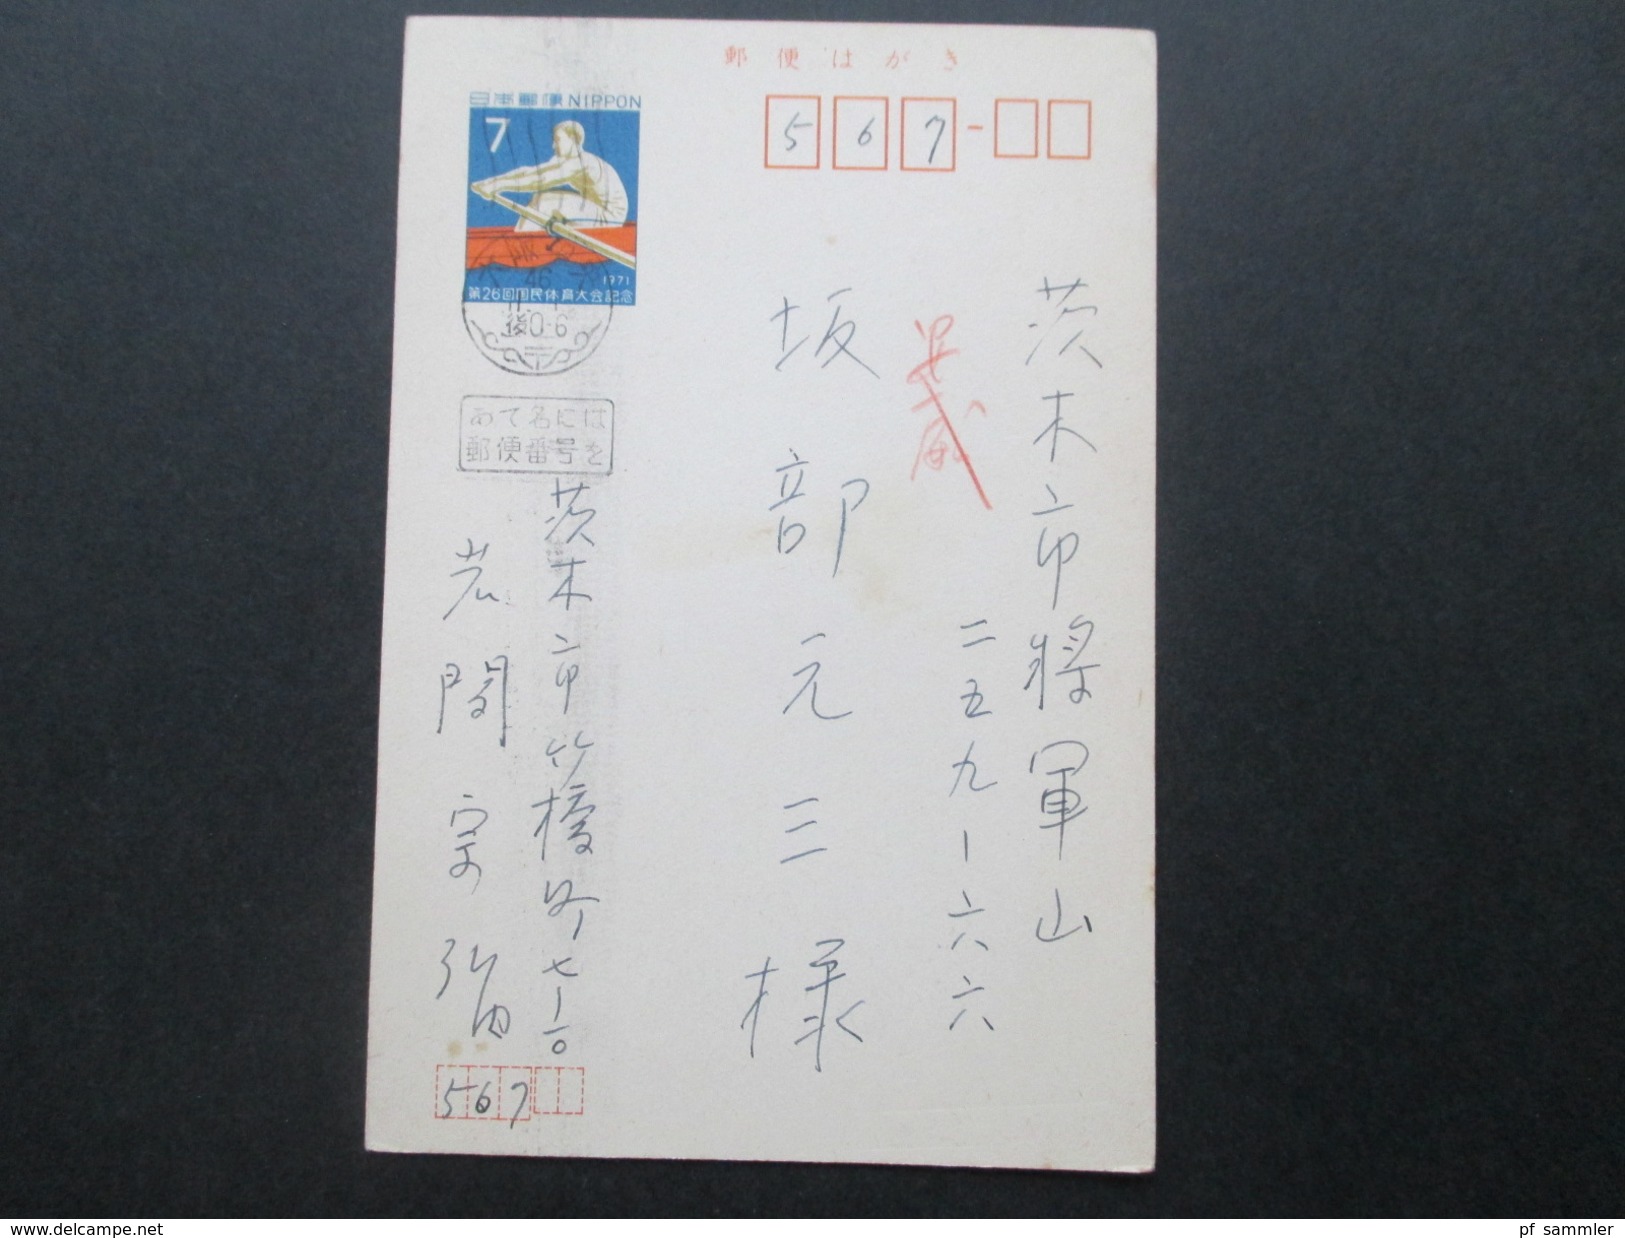 郵便はがき
日本郵便 NIPPON
7
1971
第26回国民体育大会記念
茨木
46
後0-6
あて名には
郵便番号を
567-
茨木市将軍山
二五九ー六六
坂部元三様
茨木市竹橋町七ー一〇
岩間宗
567
pf sammler